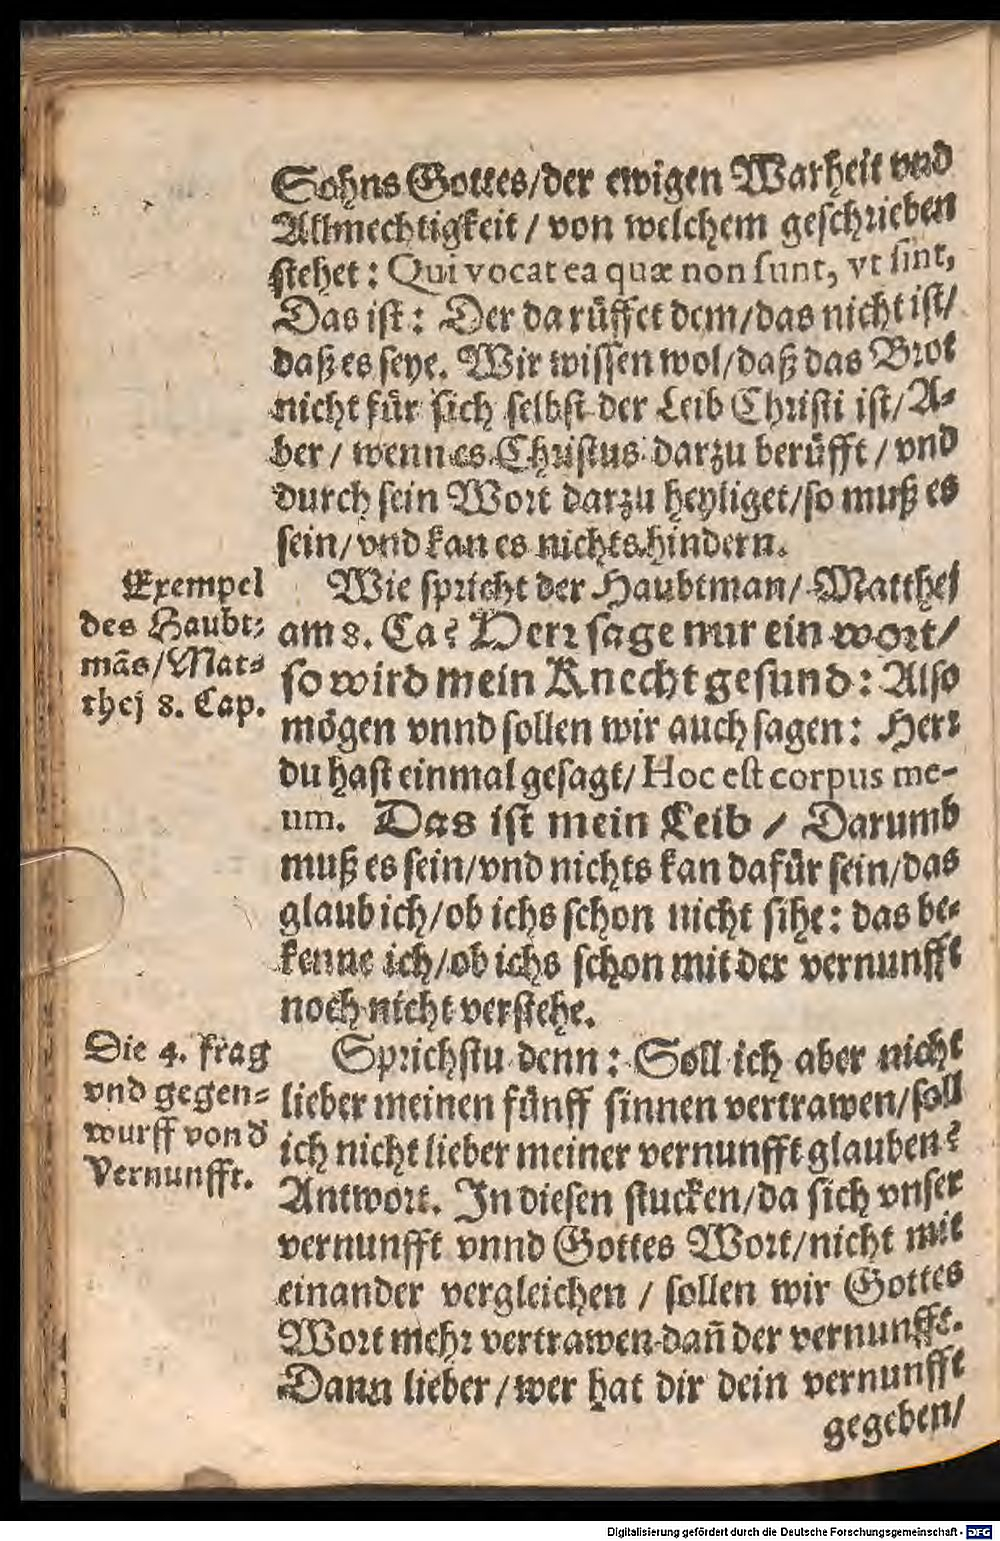 Sohns Gottes/der ewigen Warheit vnd
Allmechtigkeit / von welchem geschrieben
stehet: Qui vocat ea quæ non sunt, vt sint,
Das ist: Der da rüffet dem/das nicht ist/
daß es seye. Wir wissen wol/daß das Brot
nicht für sich selbst der Leib Christi ist/A-
ber / wenn es Christus darzu berüfft / vnd
durch sein Wort darzu heyliget/so muß es
sein/vnd kan es nichts hindern.
Exempel
des Haubt-
mãs/Mat-
thej 8. Cap.
Wie spricht der Haubtman/ Matthej
am 8. Ca? Herr sage nur ein wort/
so wird mein Knecht gesund: Also
mögen vnnd sollen wir auch sagen: Herr
du hast einmal gesagt/ Hoc est corpus me-
um. Das ist mein Leib / Darumb
muß es sein/vnd nichts kan dafür sein/das
glaub ich/ob ichs schon nicht sihe: das be-
kenne ich/ob ichs schon mit der vernunfft
noch nicht verstehe.
Die 4. frag
vnd gegen-
wurff von d
Vernunfft.
Sprichstu denn: Soll ich aber nicht
lieber meinen fünff sinnen vertrawen/soll
ich nicht lieber meiner vernunfft glauben?
Antwort. In diesen stucken/da sich vnser
vernunfft vnnd Gottes Wort/nicht mit
einander vergleichen / sollen wir Gottes
Wort mehr vertrawen dañ der vernunfft.
Dann lieber / wer hat dir dein vernunfft
gegeben/
Digitalisierung gefördert durch die Deutsche Forschungsgemeinschaft - DFG